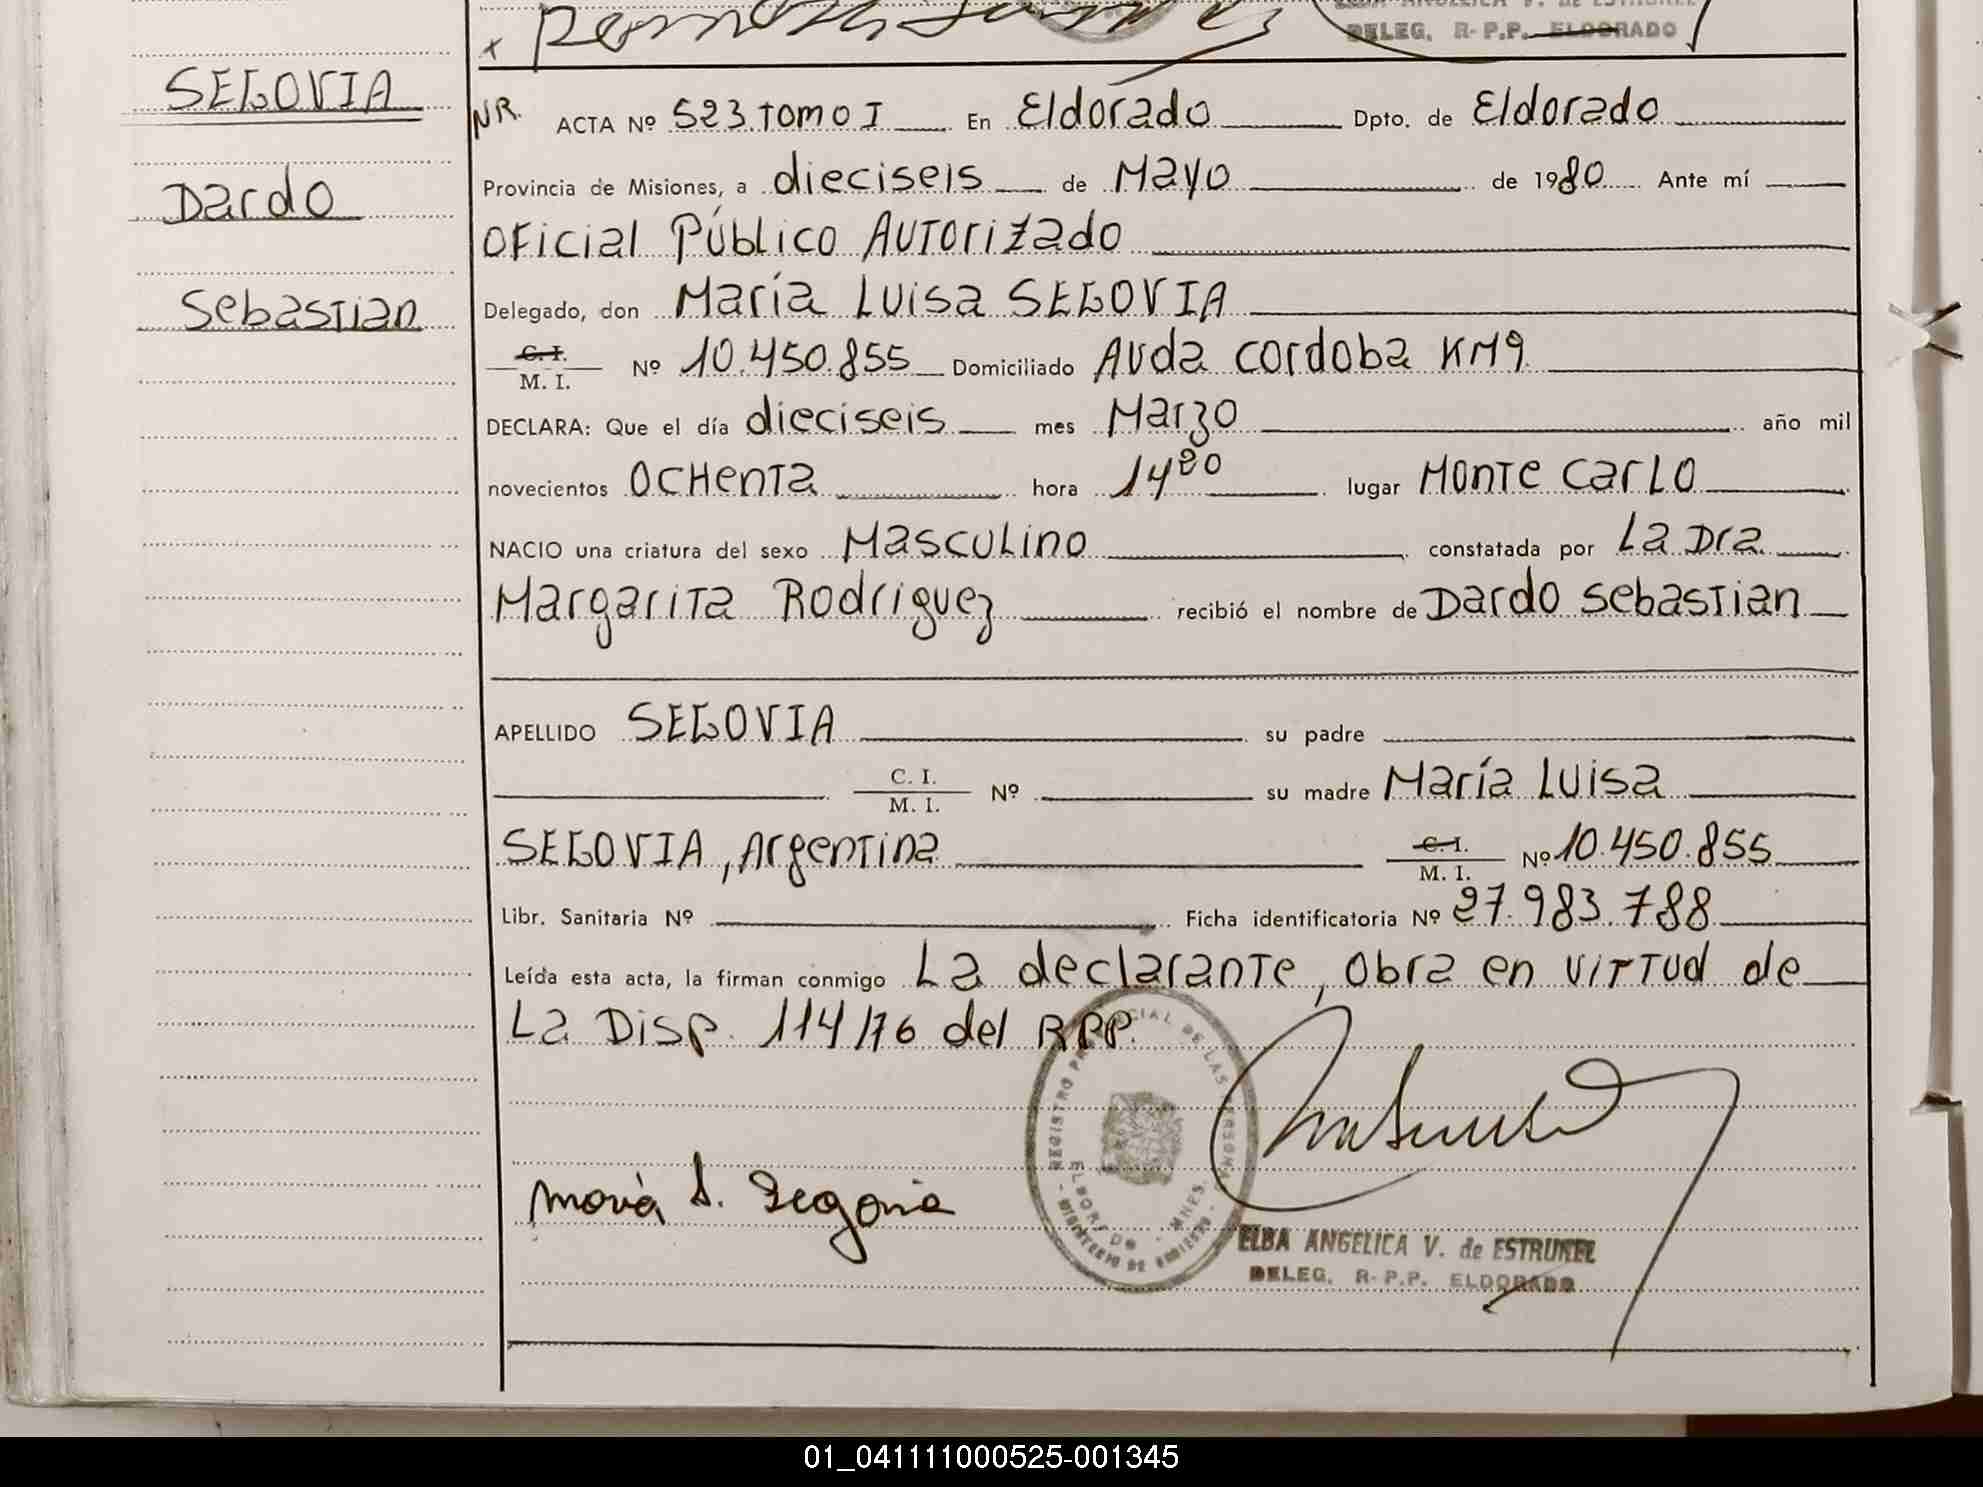 DELEG. R-P.P. ELDORADO
SEGOVIA
Dardo
Sebastian
NR. ACTA Nº 523.Tomo I En Eldorado Dpto. de Eldorado
Provincia de Misiones, a dieciseis de Mayo de 1980 Ante mí
Oficial Público Autorizado
Delegado, don María Luisa SEGOVIA
C. I. / M. I. Nº 10.450.855 Domiciliado Avda cordoba KM9
DECLARA: Que el día dieciseis mes Marzo año mil
novecientos ochenta hora 14 lugar Monte Carlo
NACIO una criatura del sexo Masculino constatada por La Dra
Margarita Rodriguez recibió el nombre de Dardo Sebastian
APELLIDO SEGOVIA su padre
C. I. / M. I. Nº su madre María Luisa
SEGOVIA, Argentina C. I. / M. I. Nº 10.450.855
Libr. Sanitaria Nº Ficha identificatoria Nº 27.983.788
Leída esta acta, la firman conmigo La declarante, obra en virtud de
La Disp. 114/76 del RPP.
REGISTRO PROVINCIAL DE LAS PERSONAS
ELDORADO - MNES.
MINISTERIO DE GOBIERNO
María L. Segovia
ELBA ANGELICA V. de ESTRUKEL
DELEG. R-P.P. ELDORADO
01_041111000525-001345